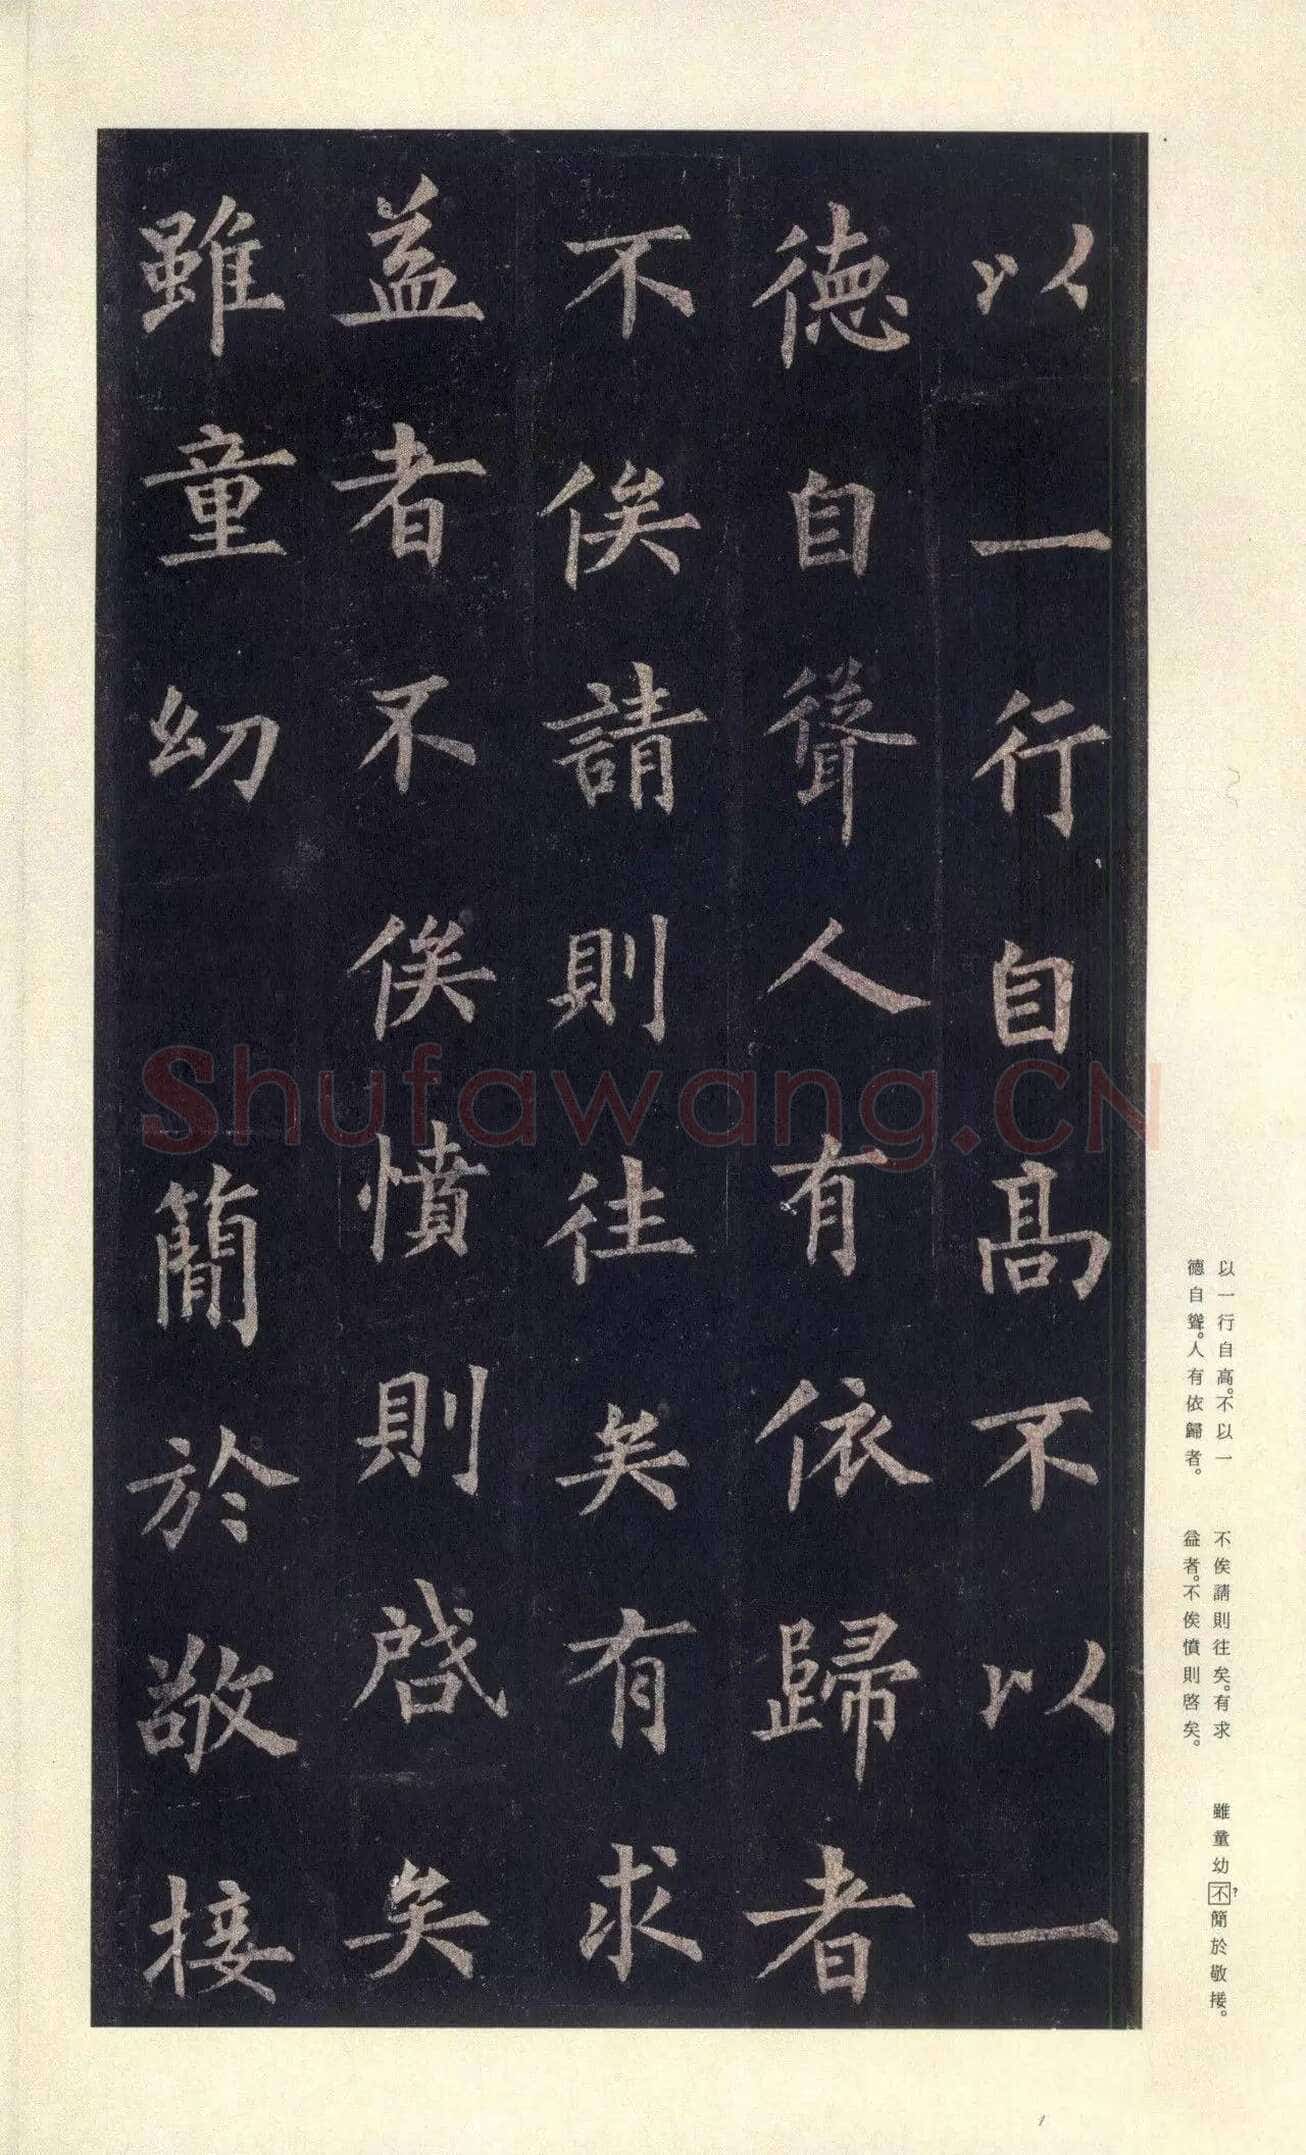 以一行自高不以一
德自聳人有依歸者
不俟請則往矣有求
益者不俟憤則啓矣
雖童幼 簡於敬接
以一行自高。不以一
德自聳。人有依歸者。
不俟請則往矣。有求
益者。不俟憤則啓矣。
雖童幼不?簡於敬接。
Shufawang.CN